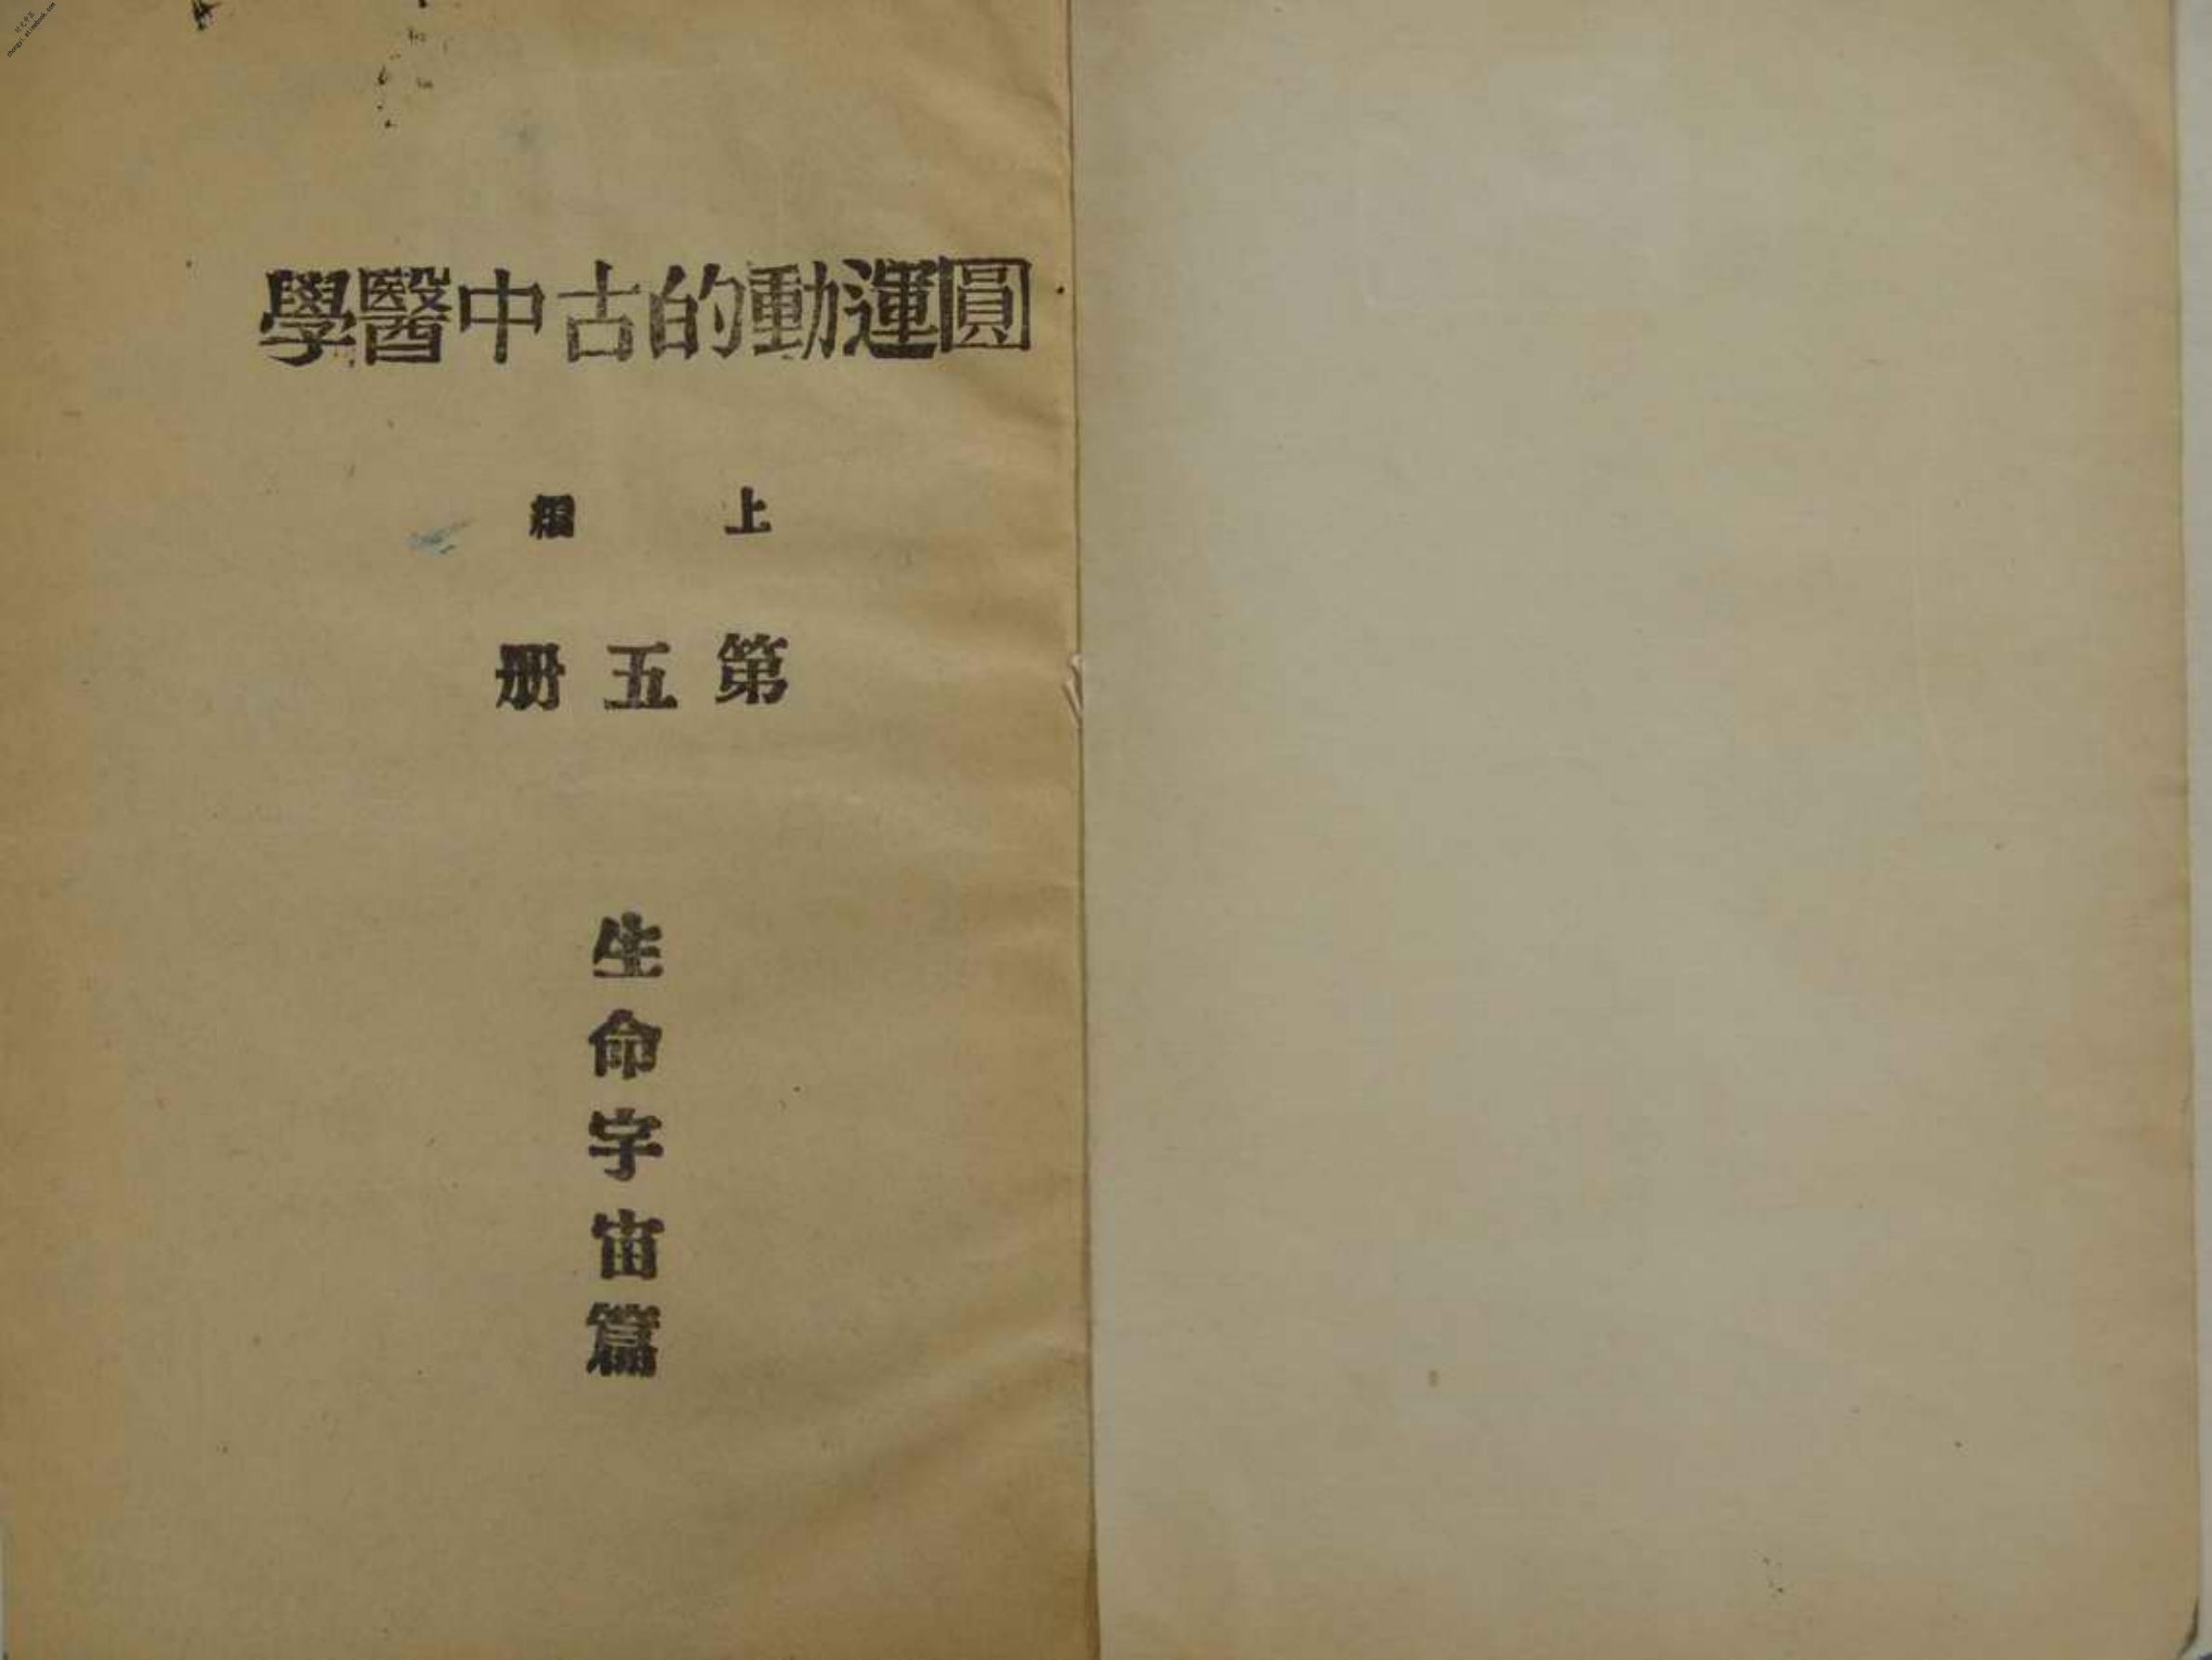 圓運動的古中醫學
上編
第五册
生命宇宙篇